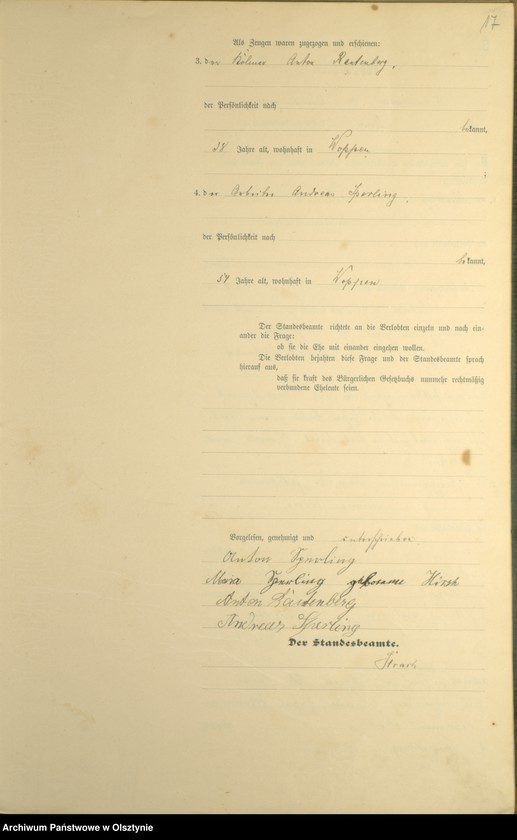 17
Als Zeugen waren zugezogen und erschienen:
3. der Anton Rautenberg,
der Persönlichkeit nach
bekannt,
38 Jahre alt, wohnhaft in Woppen
;
4. der Arbeiter Andreas Sperling,
der Persönlichkeit nach
bekannt,
54 Jahre alt, wohnhaft in Woppen
Der Standesbeamte richtete an die Verlobten einzeln und nach ein-
ander die Frage:
ob sie die Ehe mit einander eingehen wollen.
Die Verlobten bejahten diese Frage und der Standesbeamte sprach
hierauf aus,
daß sie kraft des Bürgerlichen Gesetzbuchs nunmehr rechtmäßig
verbundene Eheleute seien.
Vorgelesen, genehmigt und unterschrieben
Anton Sperling
Maria Sperling geborene Hirsch
Anton Rautenberg
Andreas Sperling
Der Standesbeamte.
Archiwum Państwowe w Olsztynie